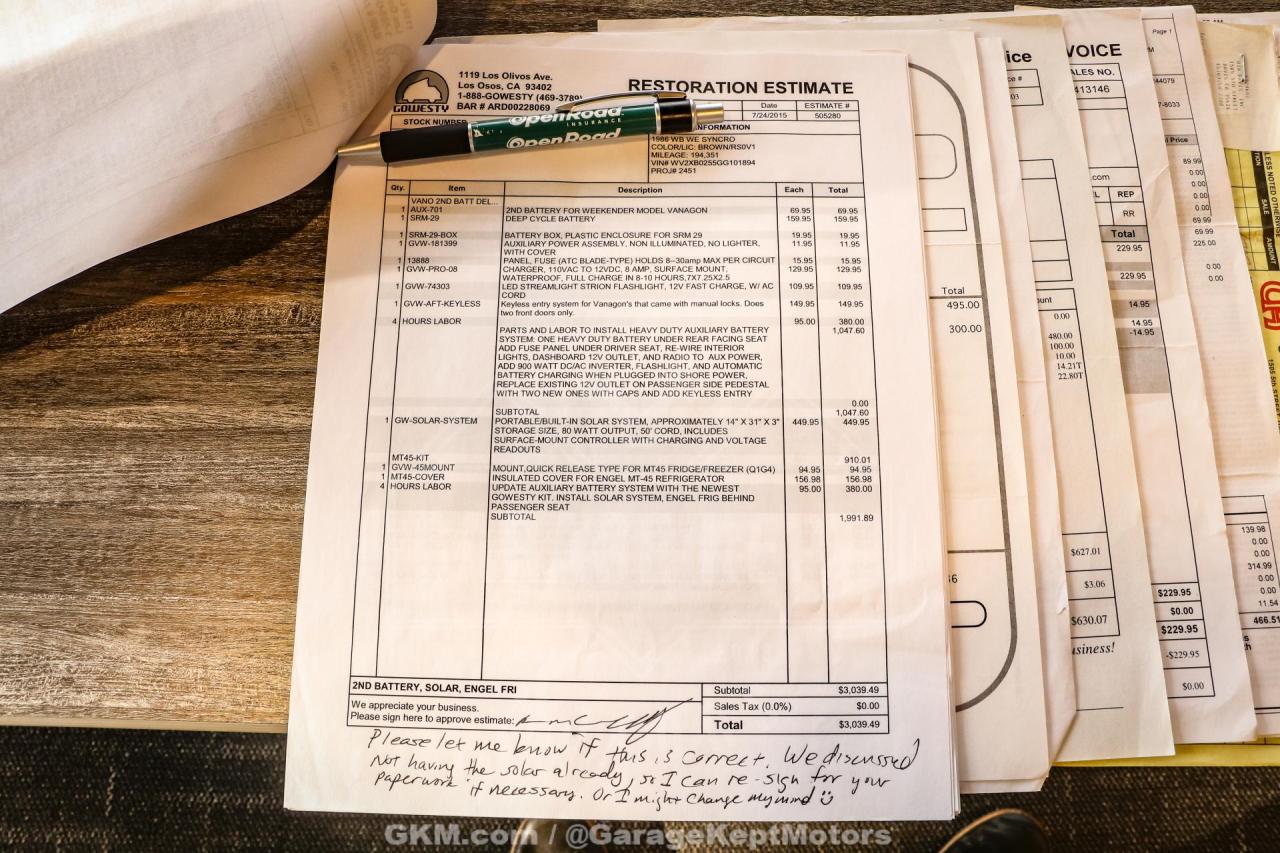 1119 Los Olivos Ave.
Los Osos, CA 93402
1-888-GOWESTY (469-3789)
BAR # ARD00228069
GOWESTY
RESTORATION ESTIMATE
Date ESTIMATE #
7/24/2015 505280
STOCK NUMBER
INFORMATION
OpenRoad
INSURANCE
OpenRoad
1986 WB WE SYNCRO
COLOR/LIC: BROWN/RS0V1
MILEAGE: 194,351
VIN# WV2XB0255GG101894
PROJ# 2451
Qty. Item Description Each Total
VANO 2ND BATT DEL...
1 AUX-701 2ND BATTERY FOR WEEKENDER MODEL VANAGON 69.95 69.95
1 SRM-29 DEEP CYCLE BATTERY 159.95 159.95
1 SRM-29-BOX BATTERY BOX, PLASTIC ENCLOSURE FOR SRM 29 19.95 19.95
1 GVW-181399 AUXILIARY POWER ASSEMBLY, NON ILLUMINATED, NO LIGHTER, 11.95 11.95
WITH COVER
1 13888 PANEL, FUSE (ATC BLADE-TYPE) HOLDS 8--30amp MAX PER CIRCUIT 15.95 15.95
1 GVW-PRO-08 CHARGER, 110VAC TO 12VDC, 8 AMP, SURFACE MOUNT, 129.95 129.95
WATERPROOF, FULL CHARGE IN 8-10 HOURS,7X7.25X2.5
1 GVW-74303 LED STREAMLIGHT STRION FLASHLIGHT, 12V FAST CHARGE, W/ AC 109.95 109.95
CORD
1 GVW-AFT-KEYLESS Keyless entry system for Vanagon's that came with manual locks. Does 149.95 149.95
two front doors only.
4 HOURS LABOR 95.00 380.00
PARTS AND LABOR TO INSTALL HEAVY DUTY AUXILIARY BATTERY 1,047.60
SYSTEM: ONE HEAVY DUTY BATTERY UNDER REAR FACING SEAT
ADD FUSE PANEL UNDER DRIVER SEAT, RE-WIRE INTERIOR
LIGHTS, DASHBOARD 12V OUTLET, AND RADIO TO AUX POWER,
ADD 900 WATT DC/AC INVERTER, FLASHLIGHT, AND AUTOMATIC
BATTERY CHARGING WHEN PLUGGED INTO SHORE POWER,
REPLACE EXISTING 12V OUTLET ON PASSENGER SIDE PEDESTAL
WITH TWO NEW ONES WITH CAPS AND ADD KEYLESS ENTRY
0.00
SUBTOTAL 1,047.60
1 GW-SOLAR-SYSTEM PORTABLE/BUILT-IN SOLAR SYSTEM, APPROXIMATELY 14" X 31" X 3" 449.95 449.95
STORAGE SIZE, 80 WATT OUTPUT, 50' CORD, INCLUDES
SURFACE-MOUNT CONTROLLER WITH CHARGING AND VOLTAGE
READOUTS
MT45-KIT 910.01
1 GVW-45MOUNT MOUNT,QUICK RELEASE TYPE FOR MT45 FRIDGE/FREEZER (Q1G4) 94.95 94.95
1 MT45-COVER INSULATED COVER FOR ENGEL MT-45 REFRIGERATOR 156.98 156.98
4 HOURS LABOR UPDATE AUXILIARY BATTERY SYSTEM WITH THE NEWEST 95.00 380.00
GOWESTY KIT. INSTALL SOLAR SYSTEM, ENGEL FRIG BEHIND
PASSENGER SEAT
SUBTOTAL 1,991.89
2ND BATTERY, SOLAR, ENGEL FRI
We appreciate your business.
Please sign here to approve estimate:
Subtotal $3,039.49
Sales Tax (0.0%) $0.00
Total $3,039.49
Please let me know if this is correct. We discussed
Not having the solar already, so I can re-sign for your
paperwork if necessary. Or I might change my mind
Total
495.00
300.00
ice
0.00
480.00
100.00
10.00
14.21T
22.80T
$627.01
$3.06
$630.07
usiness!
VOICE
ALES NO.
413146
.com
L REP
RR
Total
229.95
229.95
14.95
14.95
-14.95
$229.95
$0.00
$229.95
-$229.95
$0.00
Page 1
44079
7-8033
Price
89.99
0.00
0.00
0.00
69.99
69.99
225.00
0.00
0.00
139.98
0.00
0.00
314.99
0.00
11.54
466.51
LESS NOTED OTHERWISE
SALE
AMOUNT
GKM.com / @GarageKeptMotors